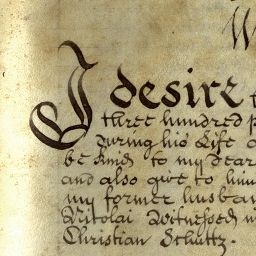 I desire
three hundred
During his Life
be kind to my dear
and also give to him
my former husban
Nicolai Witnessed
Christian Schultz.